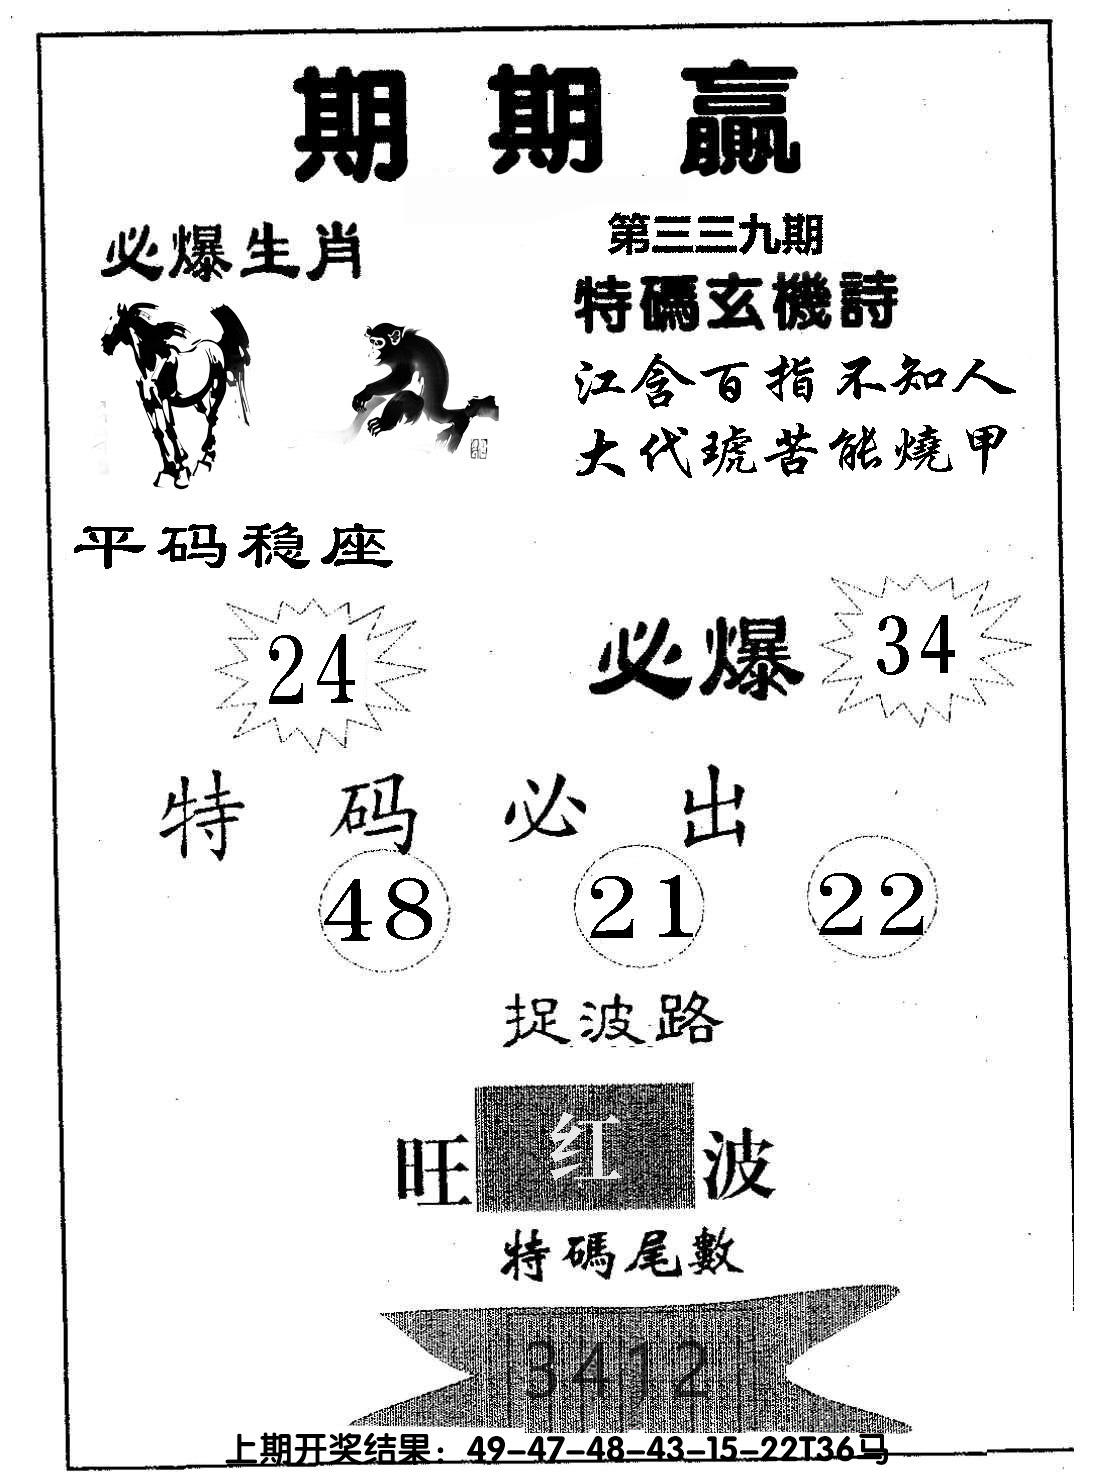 期期贏
第三三九期
必爆生肖
特碼玄機詩
江含百指不知人
大代琥苦能燒甲
平码稳座
24
必爆 34
特码必出
48 21 22
捉波路
旺 红 波
特碼尾數
3412
上期开奖结果：49-47-48-43-15-22T36马